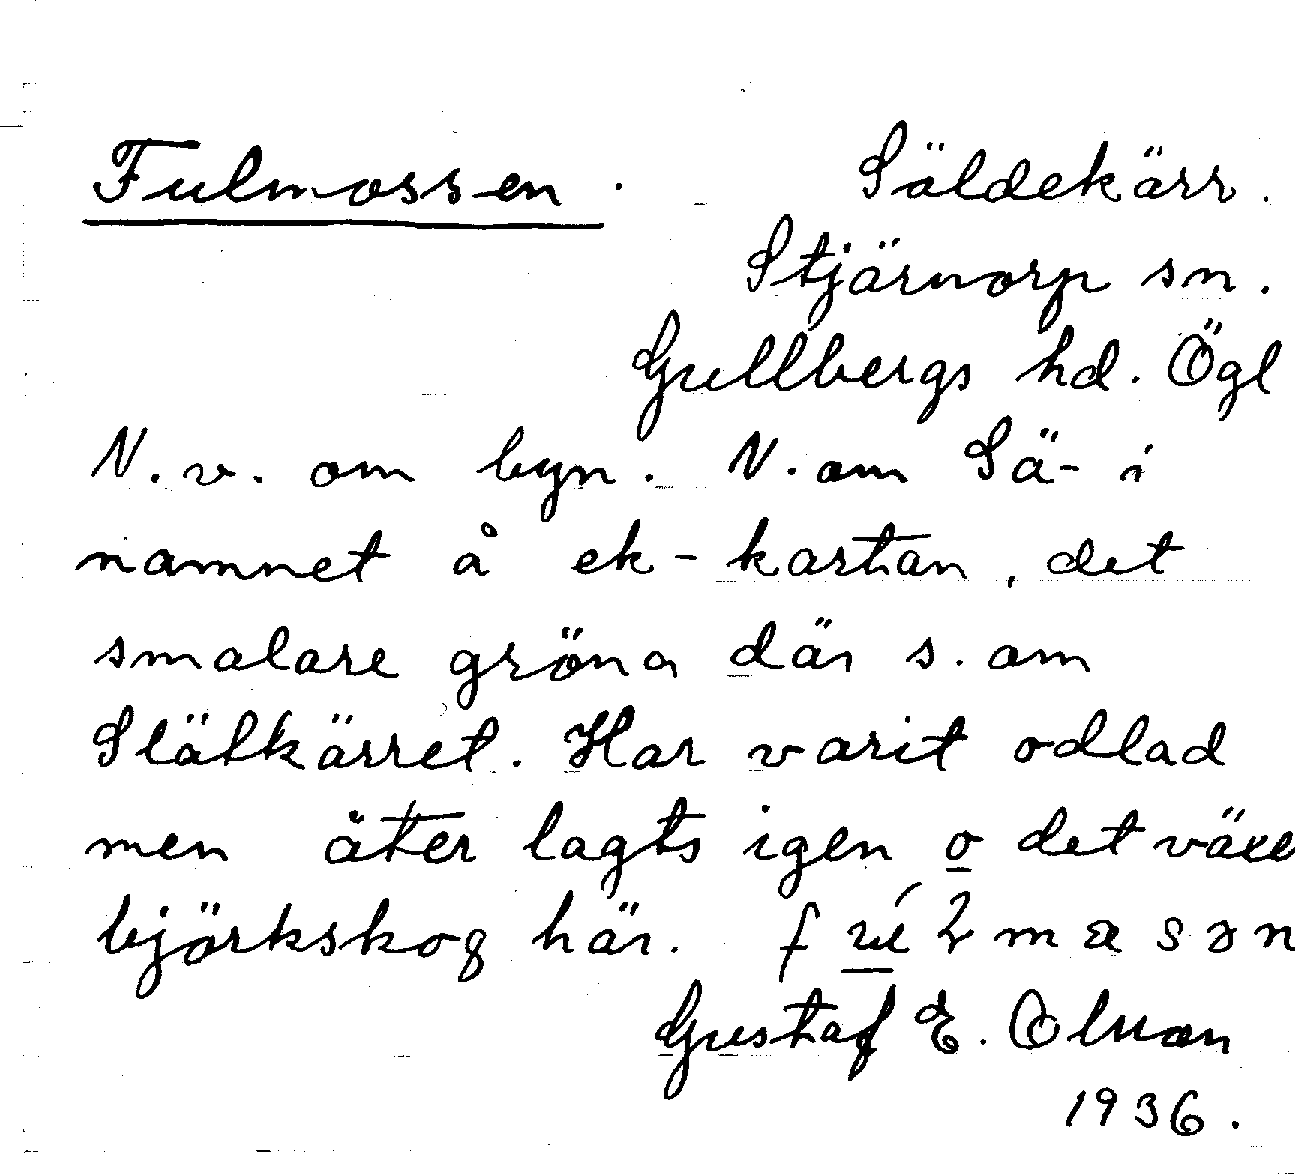 Fulmossen. Säldekärr.
Stjärnorp sn.
Gullbergs hd. Ögl
N.v. om byn. N. om Sä- i
namnet å ek-kartan, det
smalare gröna där s. om
Slätkärret. Har varit odlad
men åter lagts igen o det växer
björkskog här.
Gustaf E. Olson
1936.